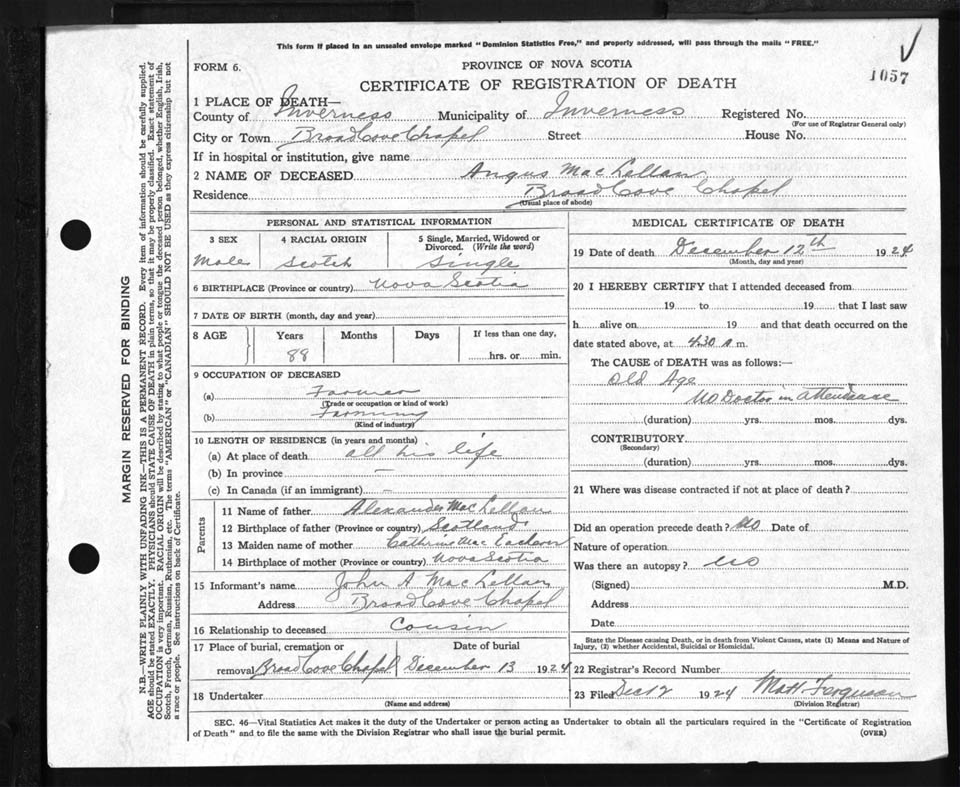 This form if placed in an unsealed envelope marked "Dominion Statistics Free," and properly addressed, will pass through the mails "FREE."
FORM 6.
PROVINCE OF NOVA SCOTIA
1057
CERTIFICATE OF REGISTRATION OF DEATH
1 PLACE OF DEATH—
County of Inverness Municipality of Inverness Registered No.
(For use of Registrar General only)
City or Town Broad Cove Chapel Street House No.
If in hospital or institution, give name
2 NAME OF DECEASED Angus MacLellan
Residence Broad Cove Chapel
(Usual place of abode)
PERSONAL AND STATISTICAL INFORMATION
3 SEX 4 RACIAL ORIGIN 5 Single, Married, Widowed or Divorced. (Write the word)
Male Scotch Single
6 BIRTHPLACE (Province or country) Nova Scotia
7 DATE OF BIRTH (month, day and year)
8 AGE Years Months Days If less than one day,
88 hrs. or min.
9 OCCUPATION OF DECEASED
(a) Farmer
(Trade or occupation or kind of work)
(b) Farming
(Kind of industry)
10 LENGTH OF RESIDENCE (in years and months)
(a) At place of death all his life
(b) In province —
(c) In Canada (if an immigrant) —
Parents
11 Name of father Alexander MacLellan
12 Birthplace of father (Province or country) Scotland
13 Maiden name of mother Cathrine MacEachern
14 Birthplace of mother (Province or country) Nova Scotia
15 Informant's name John A MacLellan
Address Broad Cove Chapel
16 Relationship to deceased Cousin
17 Place of burial, cremation or Date of burial
removal Broad Cove Chapel December 13 1924
18 Undertaker
(Name and address)
MEDICAL CERTIFICATE OF DEATH
19 Date of death December 12th 1924
(Month, day and year)
20 I HEREBY CERTIFY that I attended deceased from
19 to 19 that I last saw
h alive on 19 and that death occurred on the
date stated above, at 4.30 a m.
The CAUSE of DEATH was as follows:—
Old Age
No Doctor in attendance
(duration) yrs. mos. dys.
CONTRIBUTORY
(Secondary)
(duration) yrs. mos. dys.
21 Where was disease contracted if not at place of death?
Did an operation precede death? No Date of
Nature of operation
Was there an autopsy? No
(Signed) M.D.
Address
Date
State the Disease causing Death, or in death from Violent Causes, state (1) Means and Nature of
Injury, (2) whether Accidental, Suicidal or Homicidal.
22 Registrar's Record Number
23 Filed Dec 12 1924 Matt. Ferguson
(Division Registrar)
SEC. 46—Vital Statistics Act makes it the duty of the Undertaker or person acting as Undertaker to obtain all the particulars required in the "Certificate of Registration
of Death" and to file the same with the Division Registrar who shall issue the burial permit. (OVER)
MARGIN RESERVED FOR BINDING
N.B.—WRITE PLAINLY WITH UNFADING INK—THIS IS A PERMANENT RECORD. Every item of information should be carefully supplied.
AGE should be stated EXACTLY. PHYSICIANS should STATE CAUSE OF DEATH in plain terms, so that it may be properly classified. Exact statement of
OCCUPATION is very important. RACIAL ORIGIN will be described by stating to what people or tongue the deceased person belonged, whether English, Irish,
Scotch, French, German, Russian, Ruthenian, etc. The terms "AMERICAN" or "CANADIAN" SHOULD NOT BE USED as they express citizenship but not
a race or people. See instructions on back of Certificate.